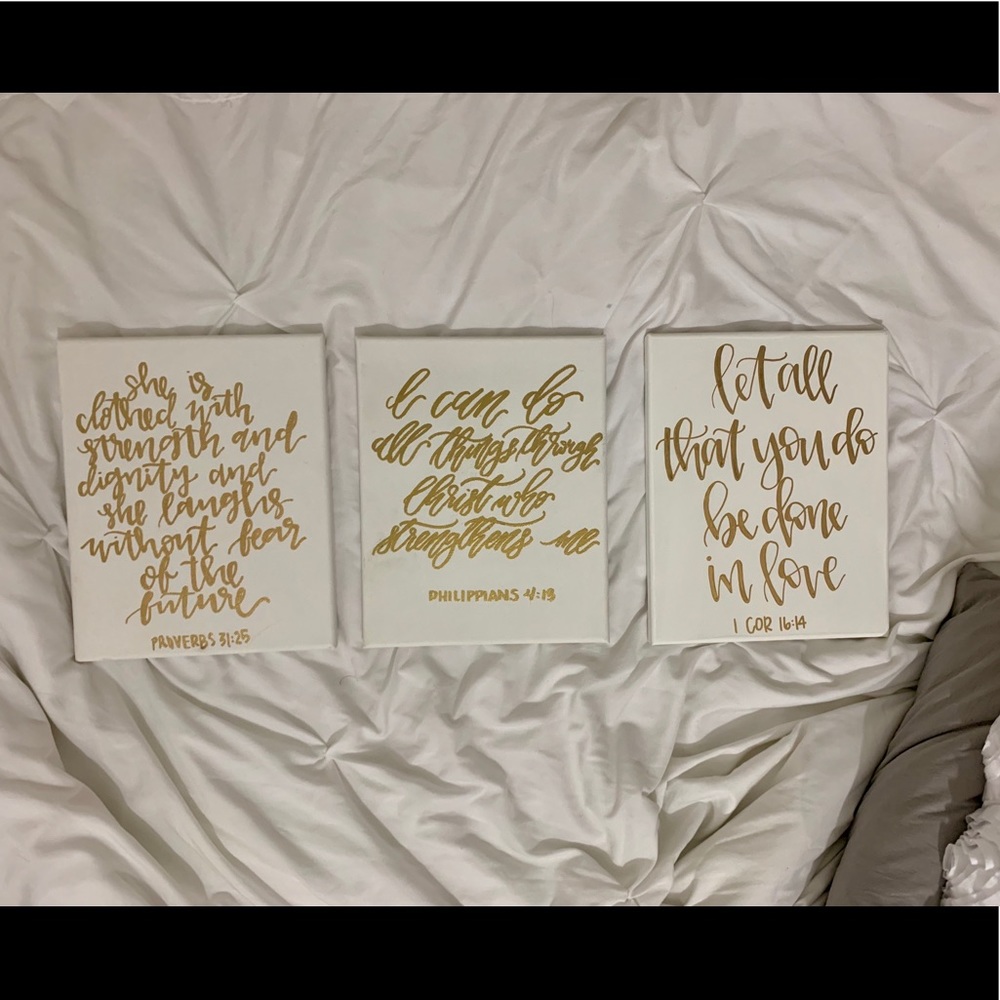 she is
clothed with
strength and
dignity and
she laughs
without fear
of the
future
PROVERBS 31:25
I can do
all things through
Christ who
strengthens me
PHILIPPIANS 4:13
let all
that you do
be done
in love
1 COR 16:14